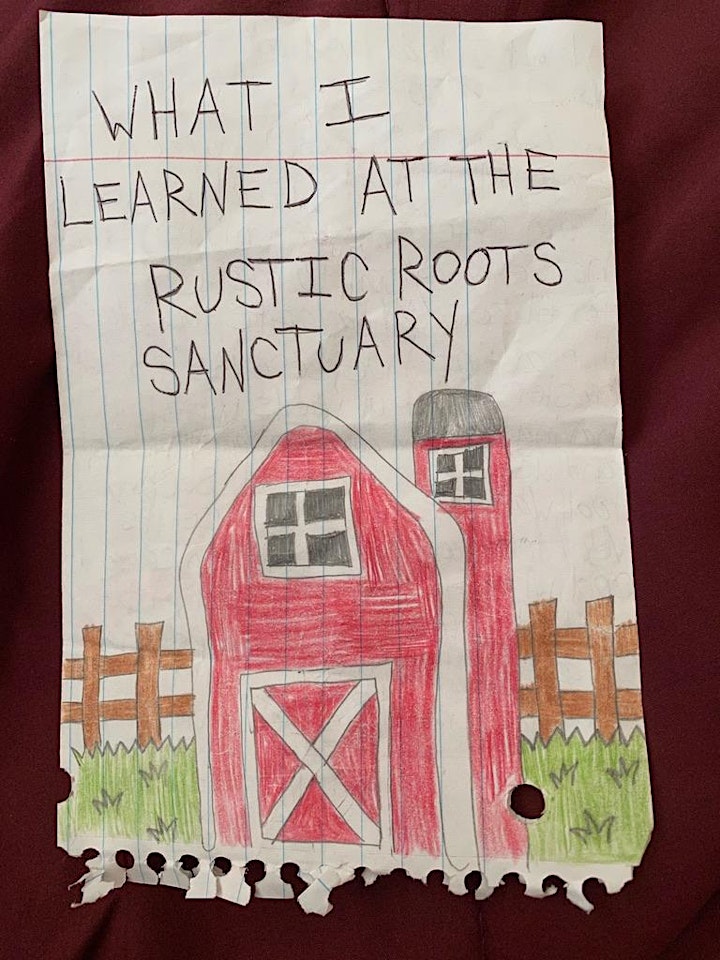 WHAT I
LEARNED AT THE
RUSTIC ROOTS
SANCTUARY